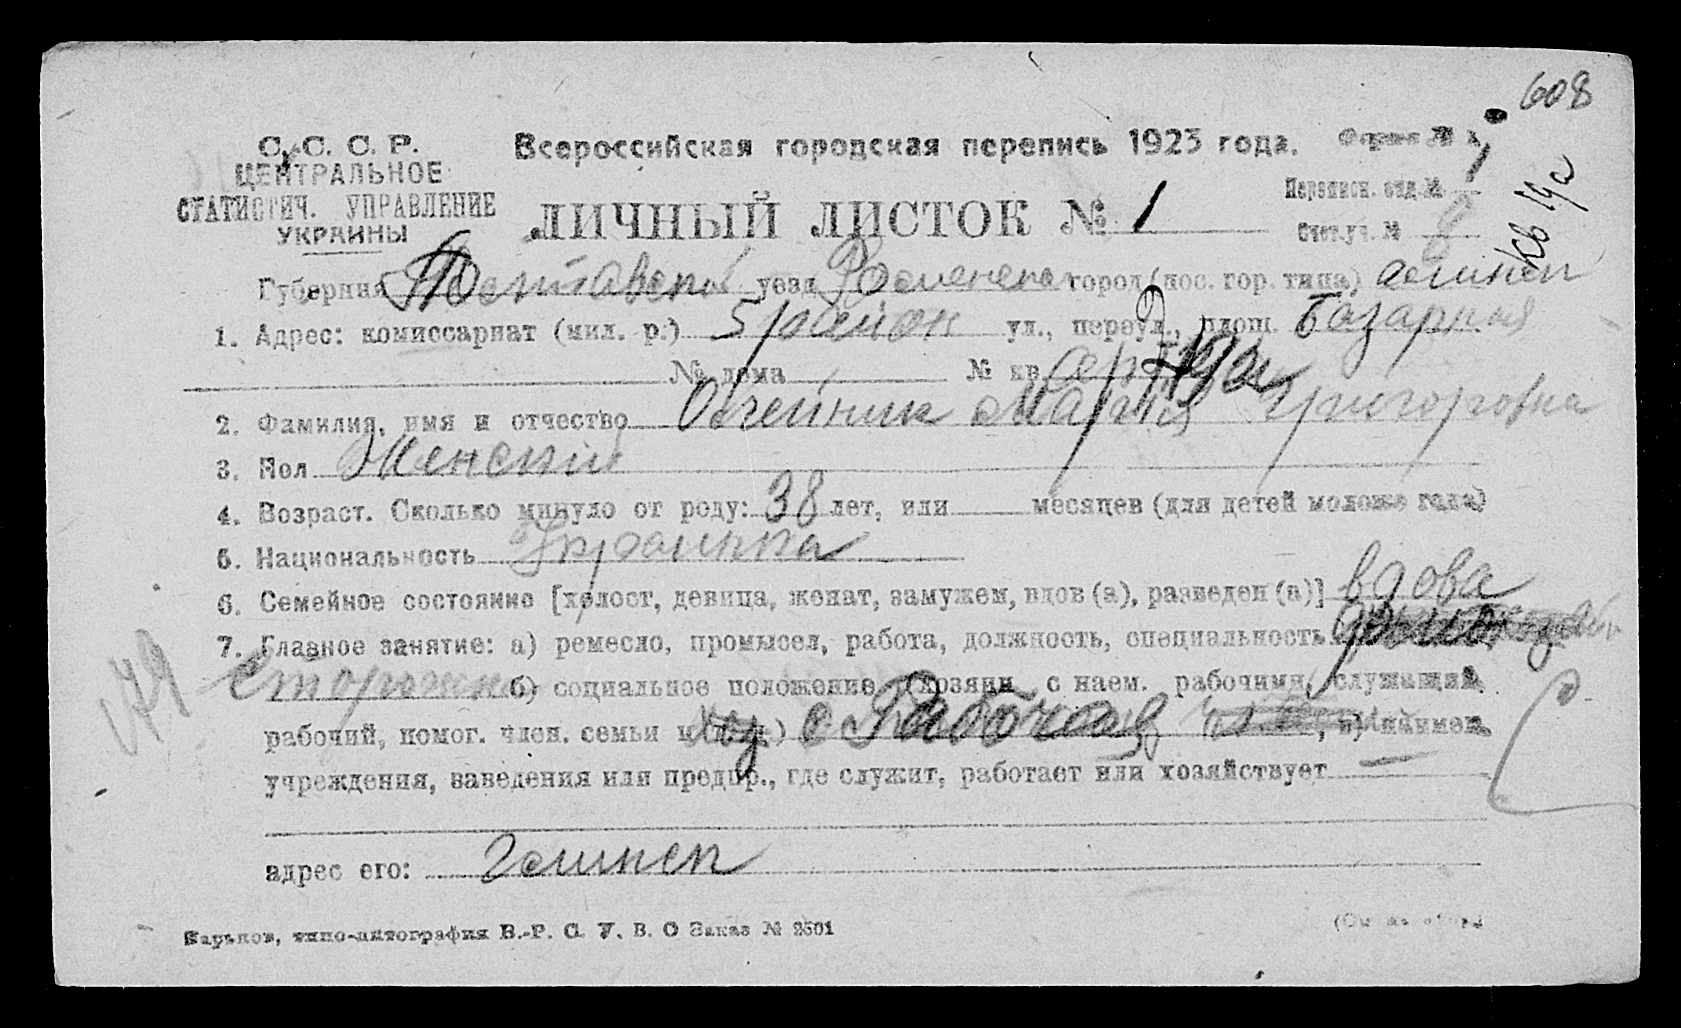 608
С. С. С. Р.
ЦЕНТРАЛЬНОЕ
СТАТИСТИЧ. УПРАВЛЕНИЕ
УКРАИНЫ
Всероссийская городская перепись 1923 года.
Форма №
ЛИЧНЫЙ ЛИСТОК № 1
Переписн. отд. № 1
Счет. уч. № 8
кв 19а
Губерния Полтавской уезд Роменского город (пос. гор. типа)
1. Адрес: комиссариат (мил. р.) 5 район ул., переул., площ. Базарная
№ дома № кв.
2. Фамилия, имя и отчество Олейник Мария Григоровна
3. Пол Женский
4. Возраст. Сколько минуло от роду: 38 лет, или месяцев (для детей моложе года)
5. Национальность Украинка
6. Семейное состояние [холост, девица, женат, замужем, вдов (а), разведен (а)] вдова
7. Главное занятие: а) ремесло, промысел, работа, должность, специальность
б) социальное положение (хозяин с наем. рабочими, служащий,
рабочий, помог. член. семьи и т. д.) , в) наимен.
учреждения, заведения или предпр., где служит, работает или хозяйствует —
адрес его:
Харьков, типо-литография В.-Р. С. У. В. О Заказ № 2501